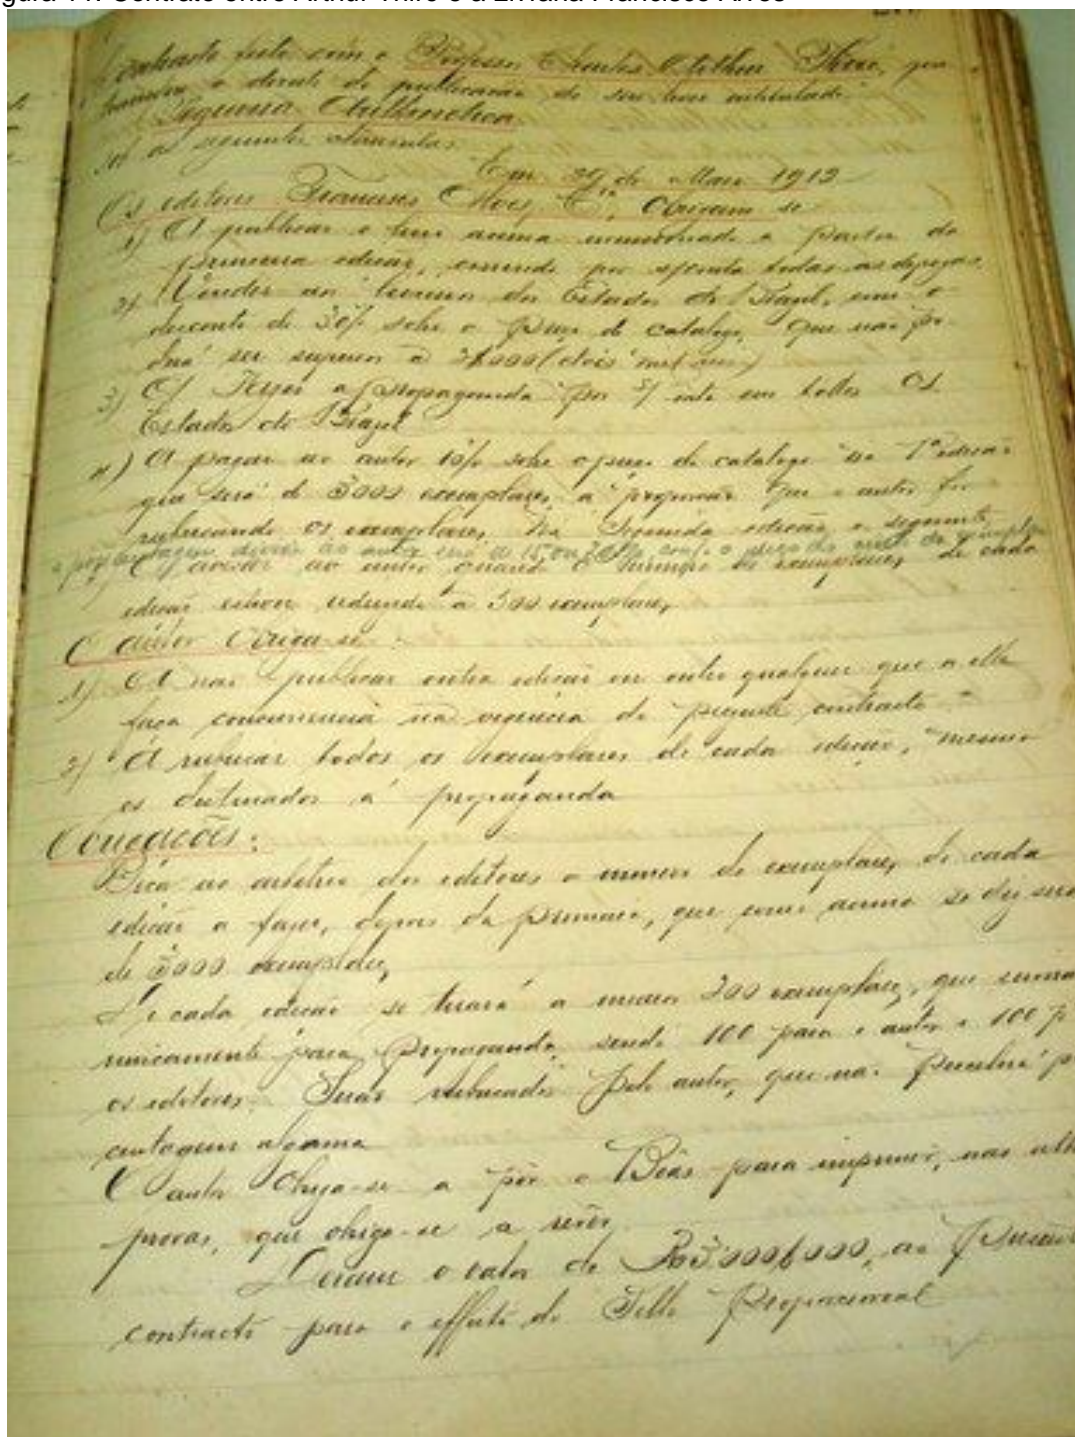 gura 14: Contrato entre Arthur Thiré e a Livraria Francisco Alves
Contracto feito com o Professor Charles Arthur Thiré, para
o direito de publicação de seu livro intitulado
Arithmetica
sob as seguintes clausulas
Em 29 de Maio 1912
Os editores Francisco Alves & Cia, Obrigam se
1) A publicar o livro acima mencionado a partir da
primeira edição, correndo por sua conta todas as despezas.
2) Vender ao dos Estados do Brazil, com o
desconto de 30% sobre o preço de catalogo, que não po-
derá ser superior a (dois mil reis)
3) A fazer a propaganda por s/ cta em todos Os
Estados do Brazil
4) A pagar ao autor 10% sobre o preço de catalogo na 1ª edição
que será de 3000 exemplares, a proporção que o autor for
rubricando os exemplares, Na Segunda edição e seguintes
a porcentagem devida ao autor será de 15 ou
A avisar ao autor quando o numero de exemplares de cada
edição estiver reduzido a 300 exemplares,
O autor Obriga-se:
1) A não publicar outra edição ou outro qualquer que a elle
faça concurrencia na vigencia do presente contracto
2) A rubricar todos os exemplares de cada edição, mesmo
os destinados á propaganda
Condições:
Fica ao arbitrio dos editores o numero de exemplares de cada
edição a fazer, depois da primeira, que como acima se diz será
de 3000 exemplares,
De cada edição se tirará a mais 200 exemplares, que servirão
unicamente para propaganda, sendo 100 para o autor e 100 p
os editores. Serão rubricados pelo autor, que não receberá p
centagem alguma
O autor Obriga-se a pôr o Bôas para imprimir, nas ulti
provas, que obriga-se a rever,
Deram o valor de Rs 3:000$000, ao presente
contracto para o effeito do Sello Proporcional